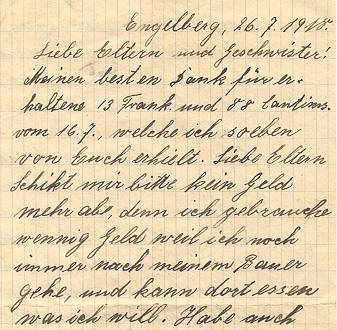 Engelberg, 26.7.1918.
Liebe Eltern und Geschwister!
Meinen besten Dank für er-
haltene 13 Frank. und 88 Cantims.
vom 16.7., welche ich soeben
von Euch erhielt. Liebe Eltern
Schikt mir bitte kein Geld
mehr abe, denn ich gebrauche
wennig Geld weil ich noch
immer nach meinem Bauer
gehe, und kann dort essen
was ich will. Habe auch